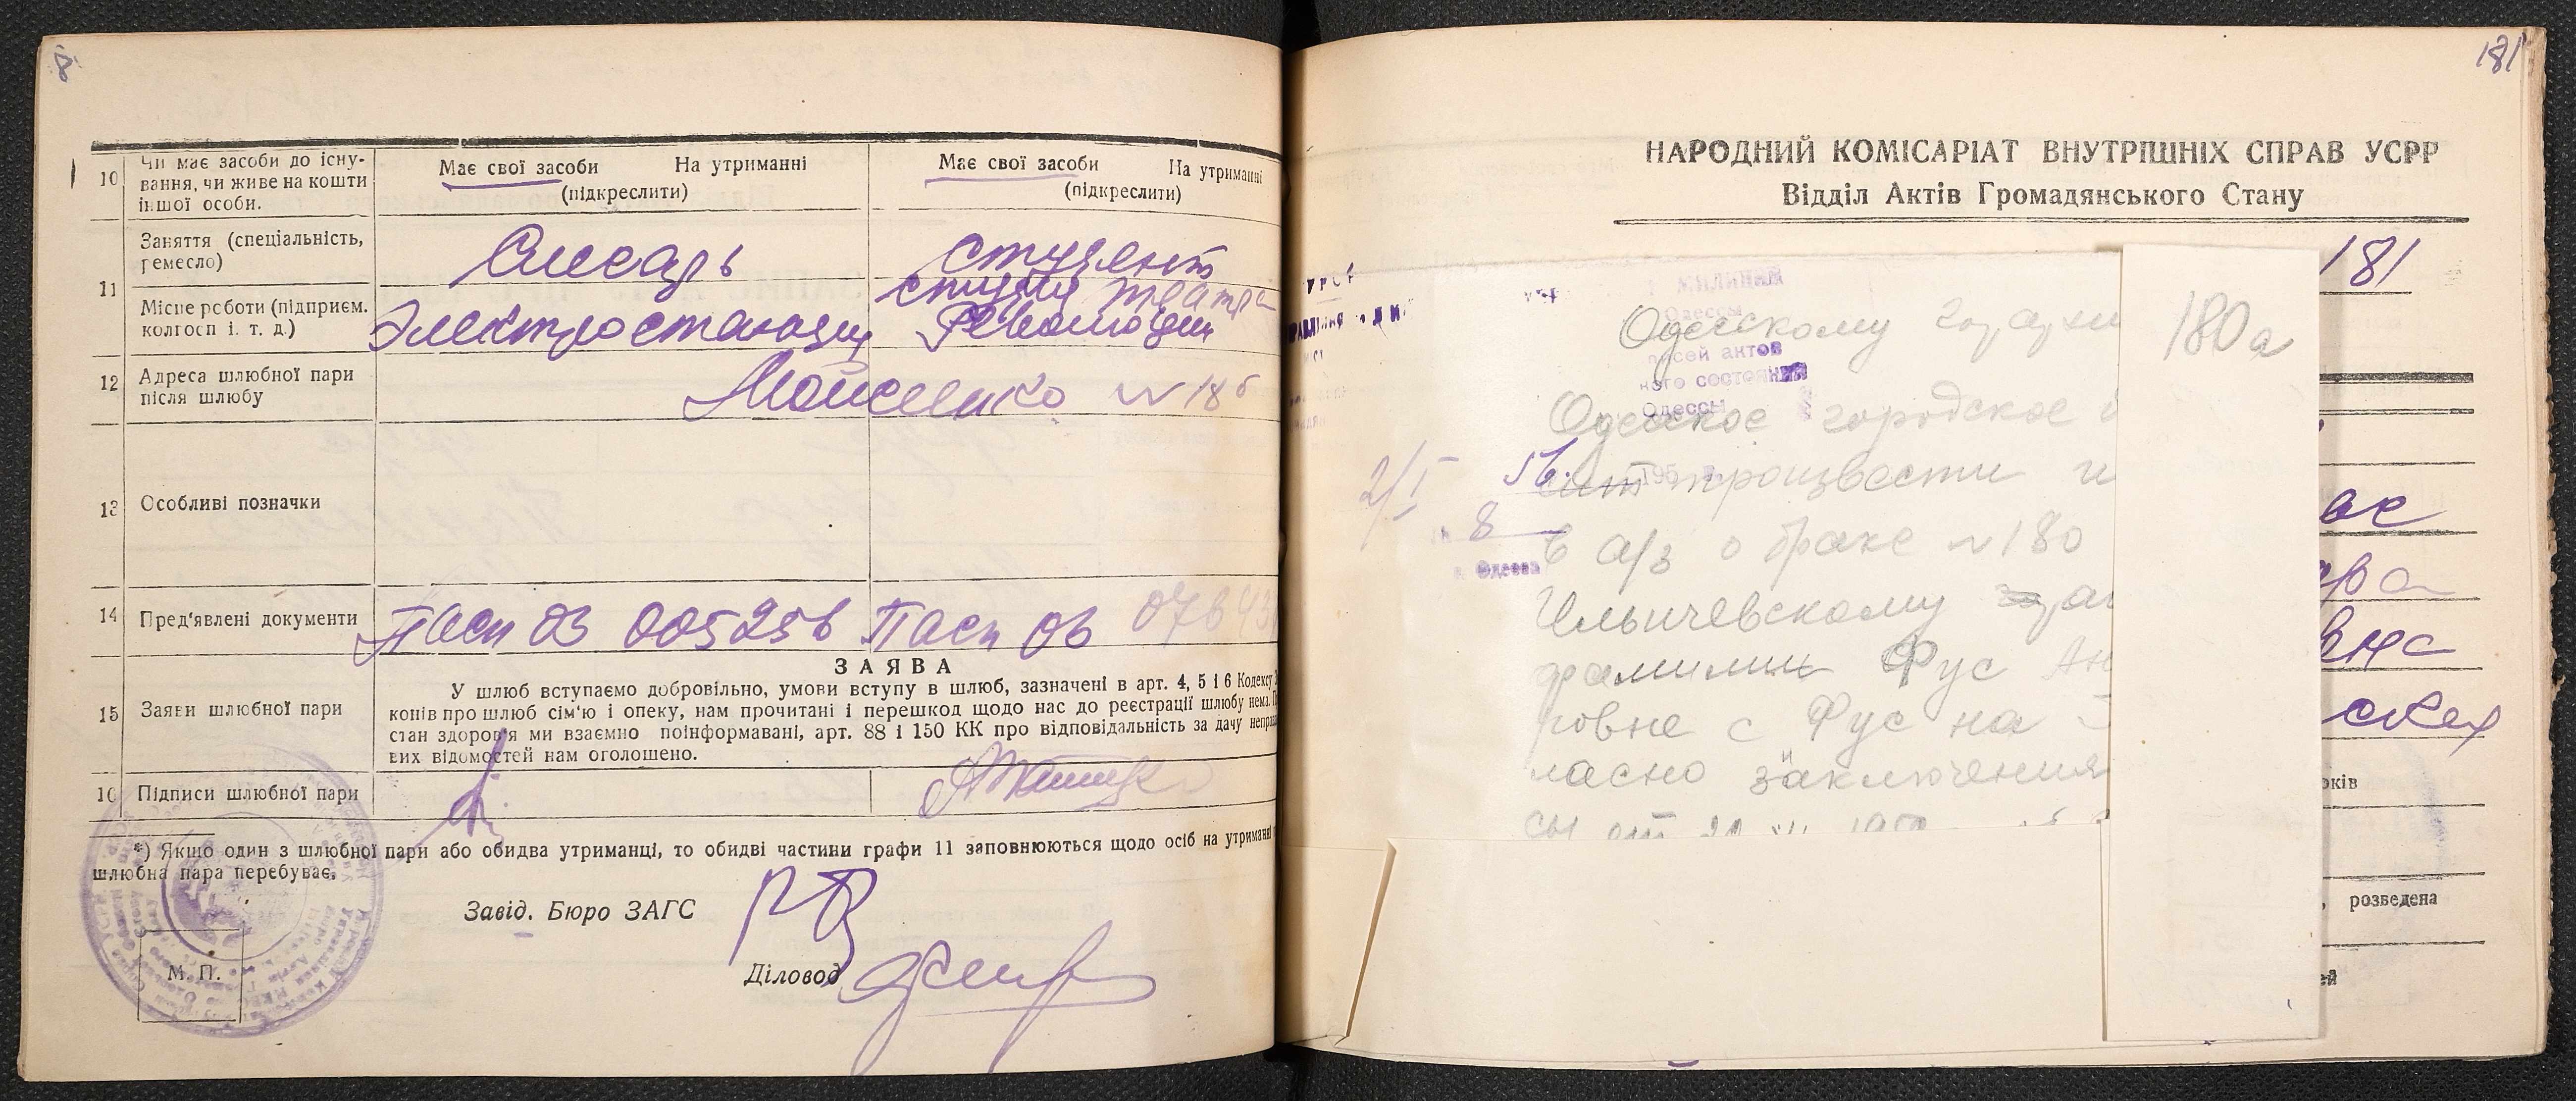 10 Чи має засоби до існу-
вання, чи живе на кошти
іншої особи.
Має свої засоби На утриманні
(підкреслити)
Має свої засоби На утриманні
(підкреслити)
11 Заняття (спеціальність,
ремесло)
Слесарь
студент
Місце роботи (підприєм.
колгосп і. т. д.)
Электростанция
студия театра
Революции
12 Адреса шлюбної пари
після шлюбу
Мойсеенко № 18
13 Особливі позначки
14 Пред'явлені документи
Пасп ОЗ 005256 Пасп 06
ЗАЯВА
15 Заяви шлюбної пари
У шлюб вступаємо добровільно, умови вступу в шлюб, зазначені в арт. 4, 5 і 6 Кодексу
конів про шлюб сім'ю і опеку, нам прочитані і перешкод щодо нас до реєстрації шлюбу нема.
стан здоров'я ми взаємно поінформавані, арт. 88 і 150 КК про відповідальність за дачу неправ
вих відомостей нам оголошено.
16 Підписи шлюбної пари
*) Якщо один з шлюбної пари або обидва утриманці, то обидві частини графи 11 заповнюються щодо осіб на утриманні
шлюбна пара перебуває.
Завід. Бюро ЗАГС
Діловод
М. П.
181
НАРОДНИЙ КОМІСАРІАТ ВНУТРІШНІХ СПРАВ УСРР
Відділ Актів Громадянського Стану
181
180а
милиции
Одессы
актов
ного состояния
Одессы
2/I 56.
№ 8
г. Одесса
Одесскому
Одесское городское
произвести
в а/з о браке № 180
Ильичевскому
фамилии Фус
ровне с Фус на
ласно заключения
розведена